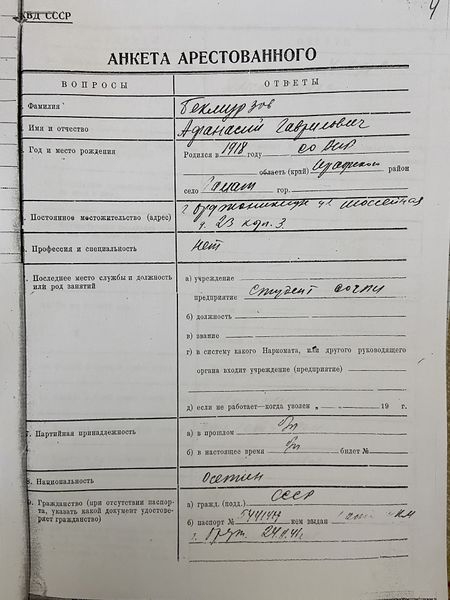 КВД СССР
4
АНКЕТА АРЕСТОВАННОГО
ВОПРОСЫ ОТВЕТЫ
Фамилия Бекмурзов
Имя и отчество Афанасий Гаврилович
Год и место рождения Родился в 1918 году СО АССР
область (край) Ирафский район
село Галиат гор.
Постоянное местожительство (адрес) г. Орджоникидзе ул. Шоссейная
23 корп. 3.
Профессия и специальность нет
Последнее место службы и должность или род занятий
а) учреждение
предприятие студент СОГПИ
б) должность
в) звание
г) в систему какого Наркомата, или другого руководящего
органа входит учреждение (предприятие)
д) если не работает—когда уволен „ 19 г.
7. Партийная принадлежность а) в прошлом б/п
б) в настоящее время б/п билет №
8. Национальность Осетин
Гражданство (при отсутствии паспор-
та, указать какой документ удостове-
ряет гражданство)
а) гражд. (подд.) СССР
б) паспорт № кем выдан